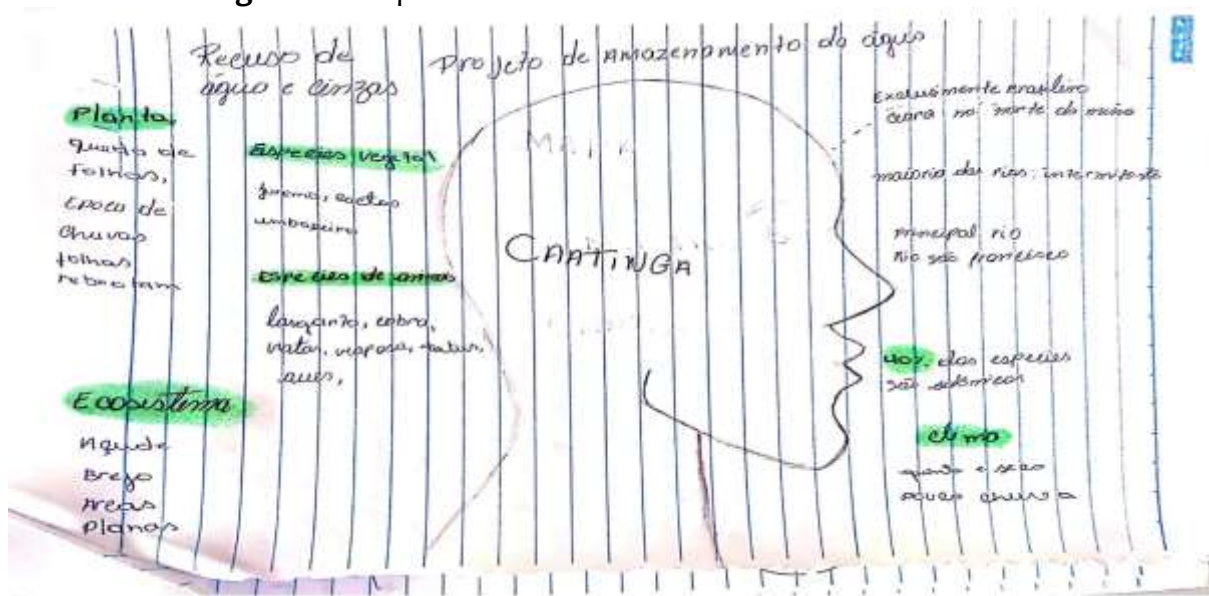 Recuso de
água e cinzas
Projeto de Amazenamento da água
Planta
queda de
folhas,
Epoca de
chuvas
folhas
rebrotam
Especies vegetal
cactos
umbuzeiro
Especies de
cobra,
aves,
Ecosistema
Açude
Brejo
Areas
Planas
CAATINGA
Exclusimente Brasileiro
Ceara no norte de
maioria dos rios: intermitente
principal rio
Rio são francisco
40% das especies
são
clima
quente e seco
pouca chuva